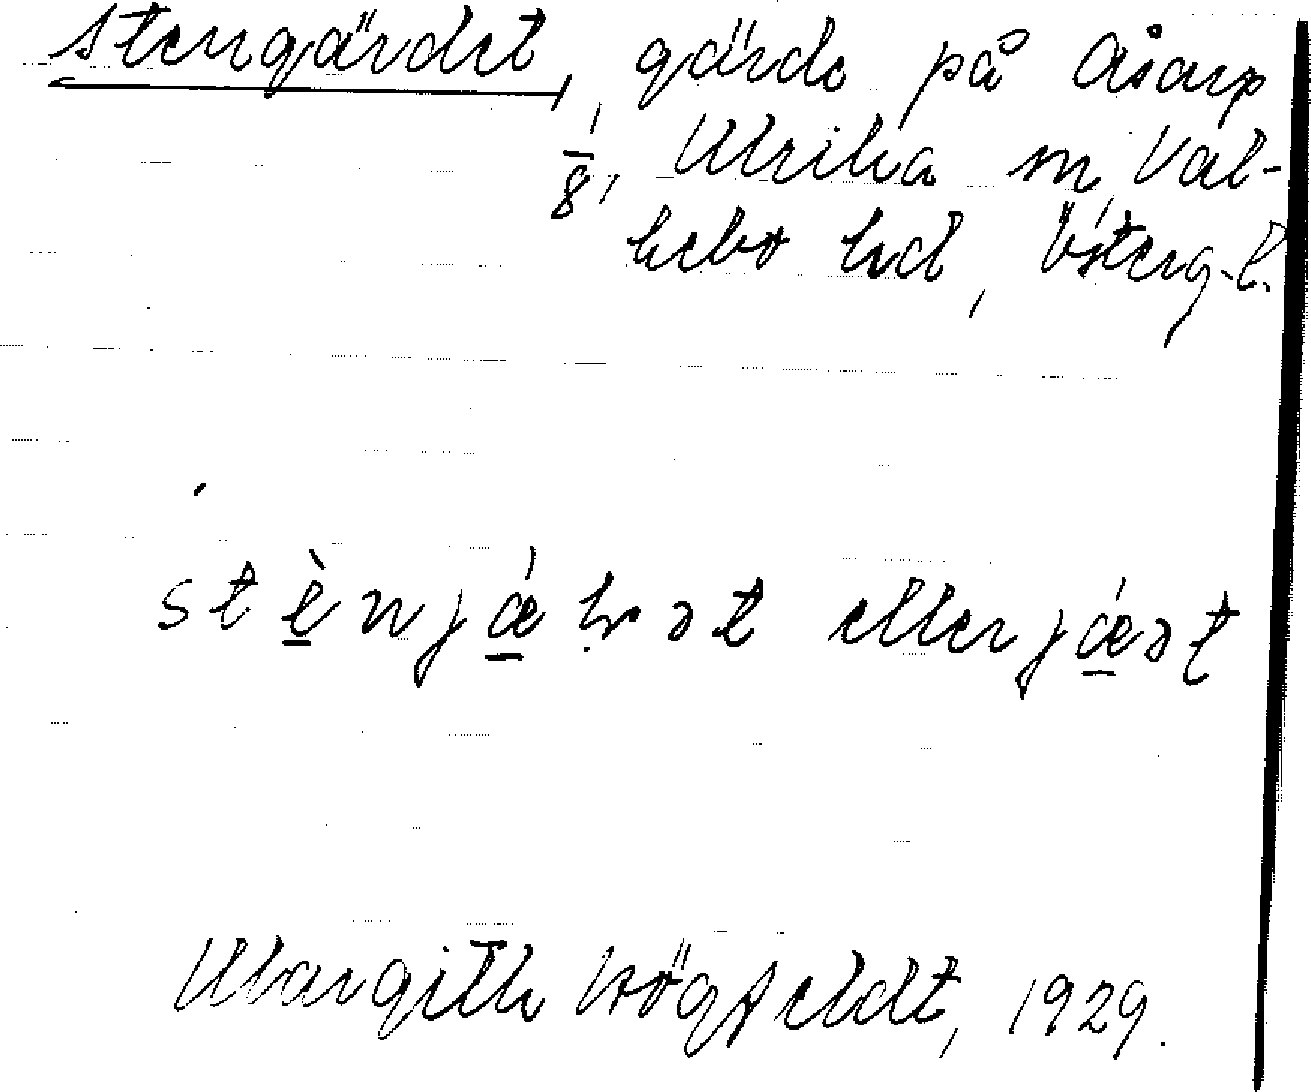 Stengärdet, gärde på Åsarp
1/8, Ulrika sn, Val-
kebo hd, Österg. l.
stènjǽ ət eller jǽət
Margith Högfeldt, 1929.